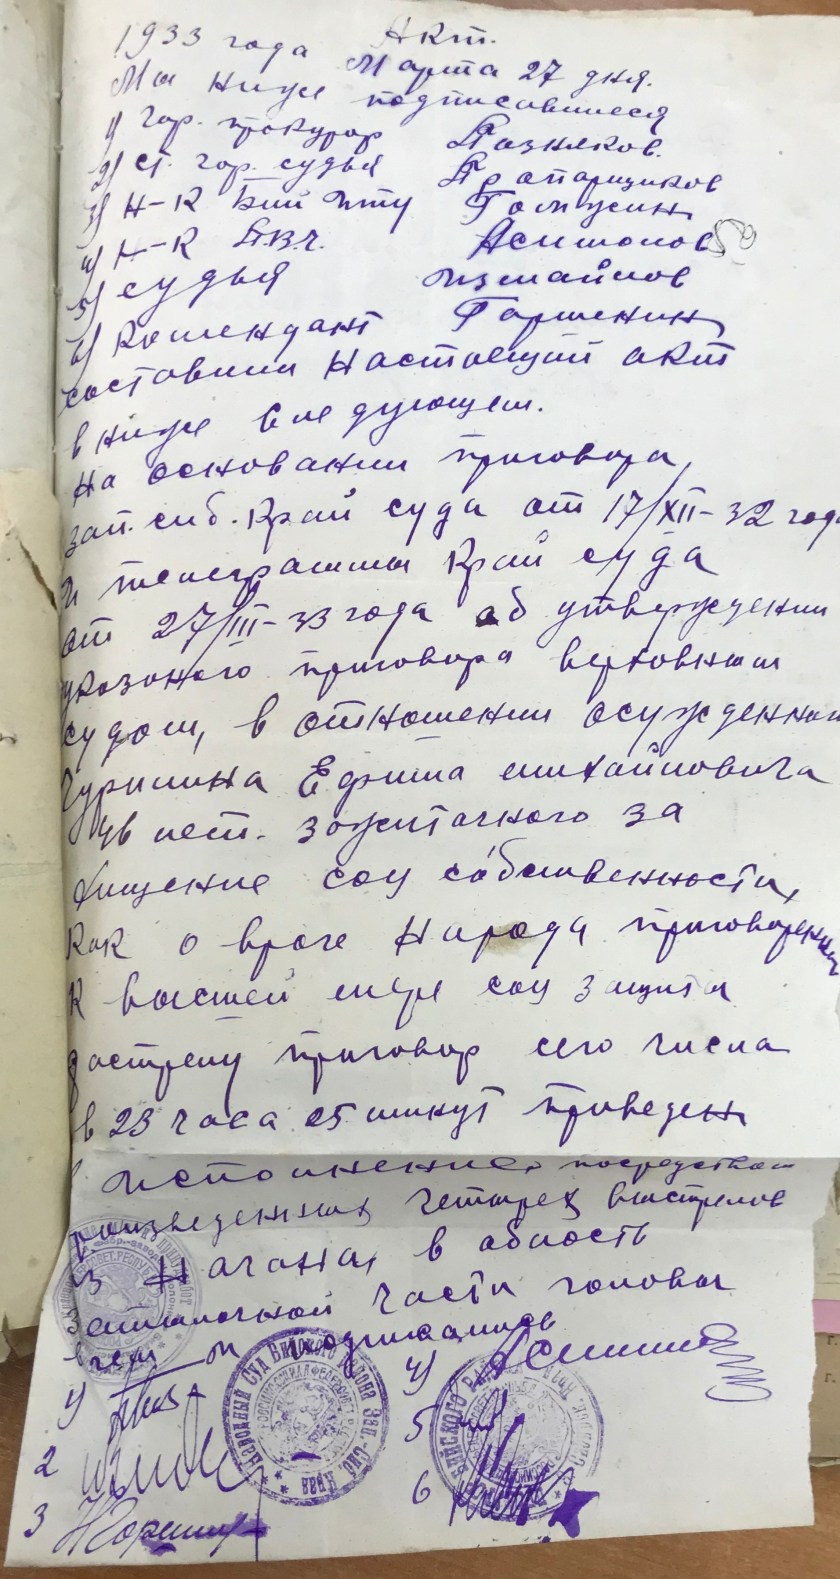 Акт.
1933 года Марта 27 дня.
Мы ниже подписавшиеся
1) Гор. прокурор Позняков.
2) ст. гор. судья Прапорщиков
3) Н-к Бий
4) Н-к П.В.Ч. Асимолов
5) судья Измайлов
6) Комендант Гаршенин
составили настоящий акт
в ниже следующем.
На основании приговора
зап. сиб. Край суда от 17/XII-32 года
и телеграммы Край суда
от 27/III-33 года об утверждении
указоного приговора верховным
судом, в отношении осужденного
Чурилина Ефима михайловича
лет. зажиточного за
хищение соц собственности,
как о враге народа приговоренный
к высшей мере соц защиты
растрелу приговор сего числа
в 23 часа 25 минут приведен
в исполнение, посредством
произведенных четырех выстрелов
из Нагана, в область
затылочной части головы
в чем и подписались
1) 4)
2 5
3 6
Народный Суд Бийского района Зап-Сиб Края